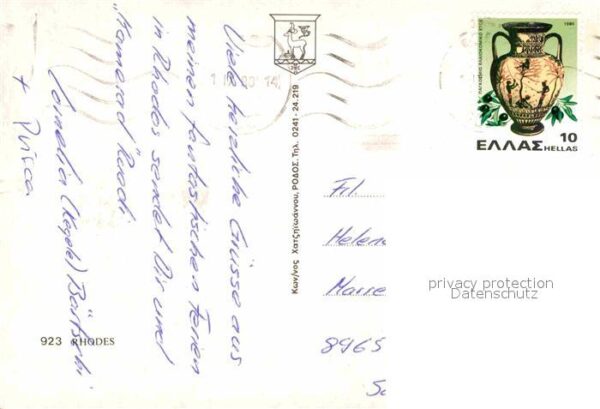 Viele herzliche Grüsse aus
meinen fantastischen Ferien
in Rhodos sendet Dir und
"Kamerad" Ruedi
Cornelia (Kegele) Bärtschi
+ Prisca
923 RHODES
Κων/νος Χατζηϊωάννου, ΡΟΔΟΣ. Τηλ. 0241 - 24.219
ΠΑΓΚΟΣΜΙΟ ΕΛΑΙΟΚΟΜΙΚΟ ΕΤΟΣ
1981
10
ΕΛΛΑΣ HELLAS
Frl.
Helen
Marre
8965
privacy protection
Datenschutz